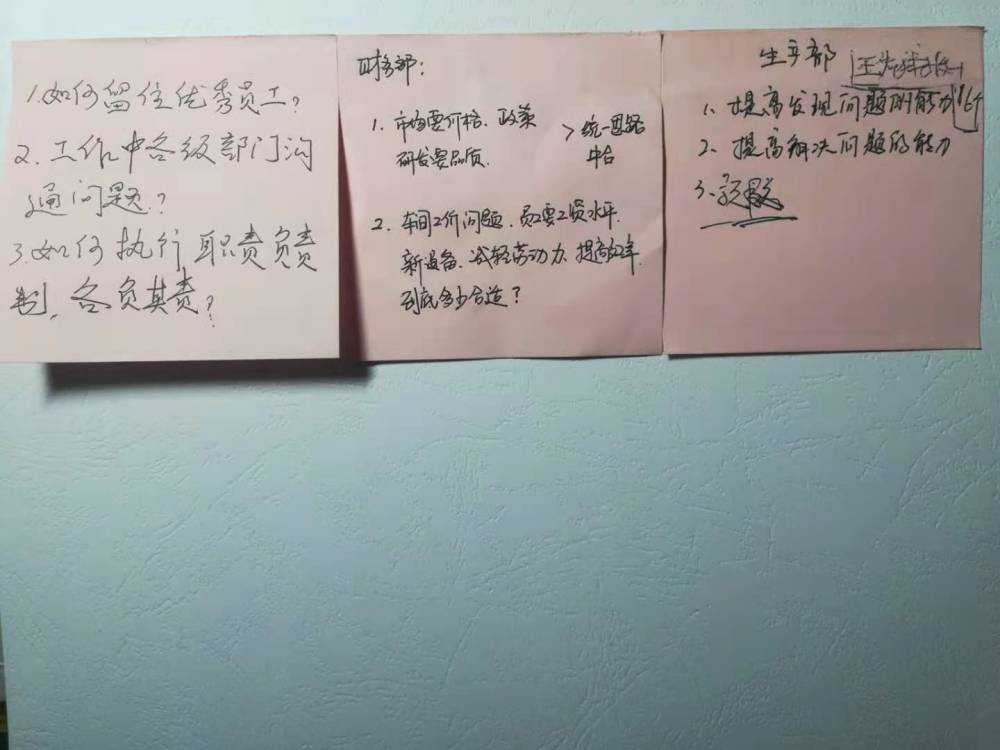 1.如何留住优秀员工?
2.工作中各级部门沟
通问题?
3.如何执行职责负责
制,各负其责?
财务部:
1. 市场要价格、政策
研发要品质.
>统一思路
中台
2. 车间工价问题.员工要工资水平.
新设备、减轻劳动力.提高效率.
到底多少合适?
生产部
1、提高发现问题的能力
2、提高解决问题的能力
3、